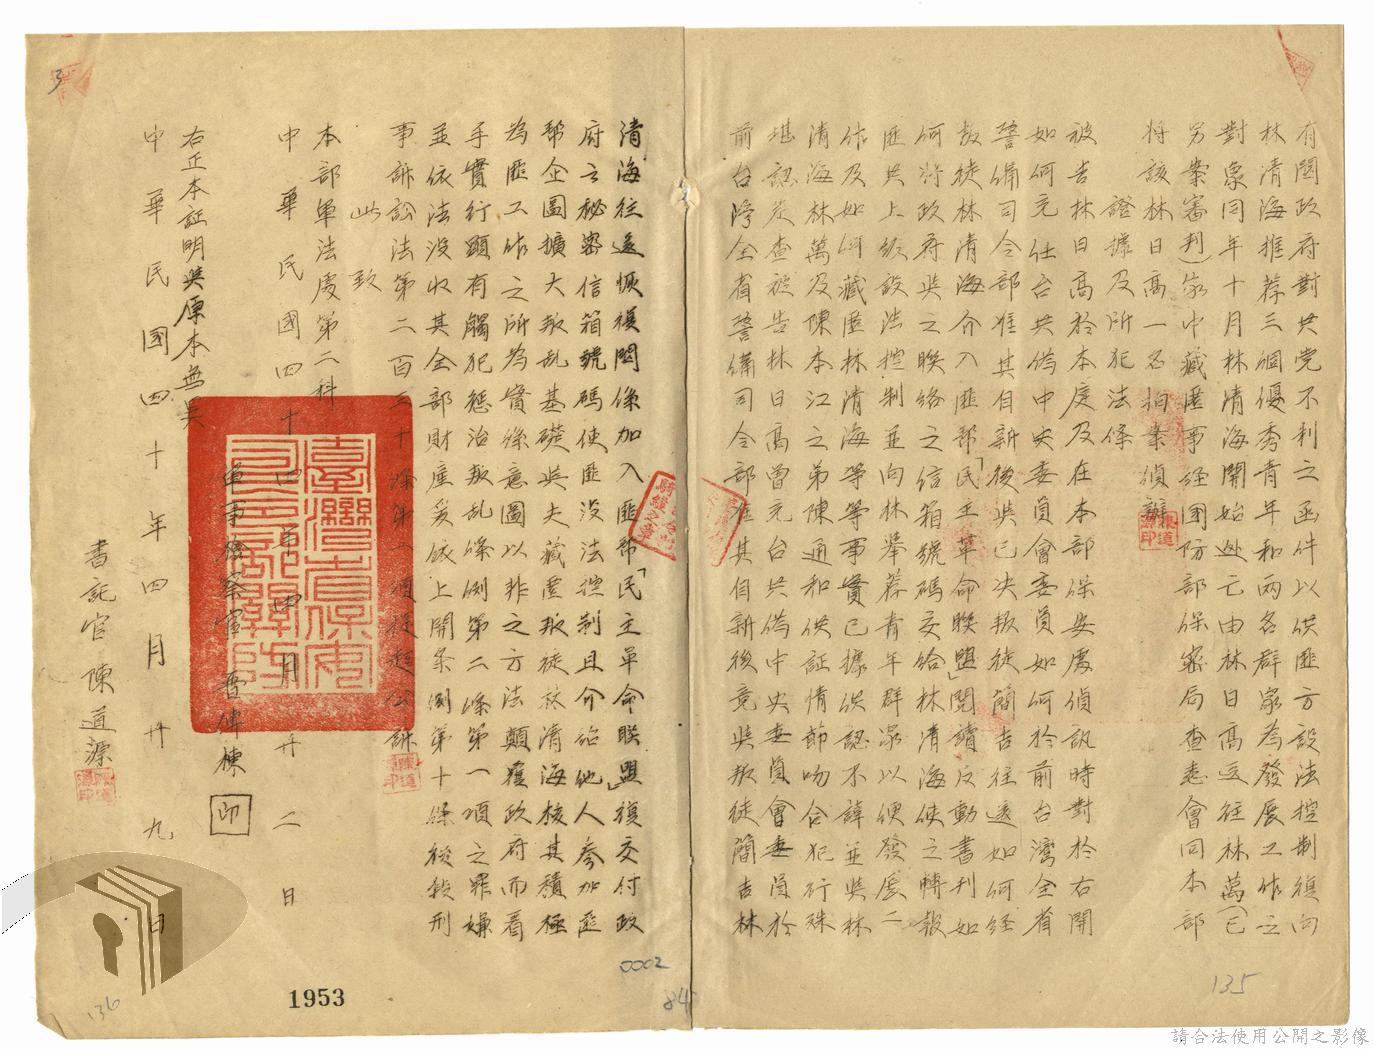 有關政府對共党不利之函件以供匪方設法控制復向
林清海推荐三個優秀青年和兩名群眾為發展工作之
對象同年十月林清海開始逃亡由林日高送往林萬(已
另案審判)家中藏匿事経國防部保密局查悉會同本部
將該林日高一名拍案偵辦
證據及所犯法條
被告林日高於本庭及在本部保安處偵訊時對於右開
如何充任台共偽中央委員會委員如何於前台灣全省
警備司令部准其自新後與已決叛徒簡吉往返如何経
叛徒林清海介入匪帮「民主革命联盟」閱讀反動書刊如
何將政府與之联絡之信箱號碼交給林清海使之轉報
匪共上級設法控制並向林舉荐青年群眾以便發展工
作及如何藏匿林清海等等事實已據供認不諱並與林
清海林萬及陳本江之弟陳通和供証情節吻合犯行殊
堪認定查被告林日高曾充台共偽中央委員會委員於
前台灣全省警備司令部准其自新後竟與叛徒簡吉林
清海往返恢復關係加入匪帮「民主革命联盟」復交付政
府之秘密信箱號碼使匪设法控制且介紹他人参加匪
帮企圖擴大叛乱基礎與夫藏匿叛徒林清海核其積極
為匪工作之所為實係意圖以非之方法顛覆政府而着
手實行顯有觸犯惩治叛乱條例第二條第一項之罪嫌
並依法没收其全部財產爰依上開条例第十條後段刑
事訴訟法第二百三十條第一項提起公訴
此致
本部軍法處第二科
中華民國四十四年四月廿二日
軍事檢察官曹偉棟 印
右正本証明與原本無異
中華民國四十年四月廿九日
書記官陳道源
陳道源印
騎縫之章
3
0002
84
135
136
1953
請合法使用公開之影像